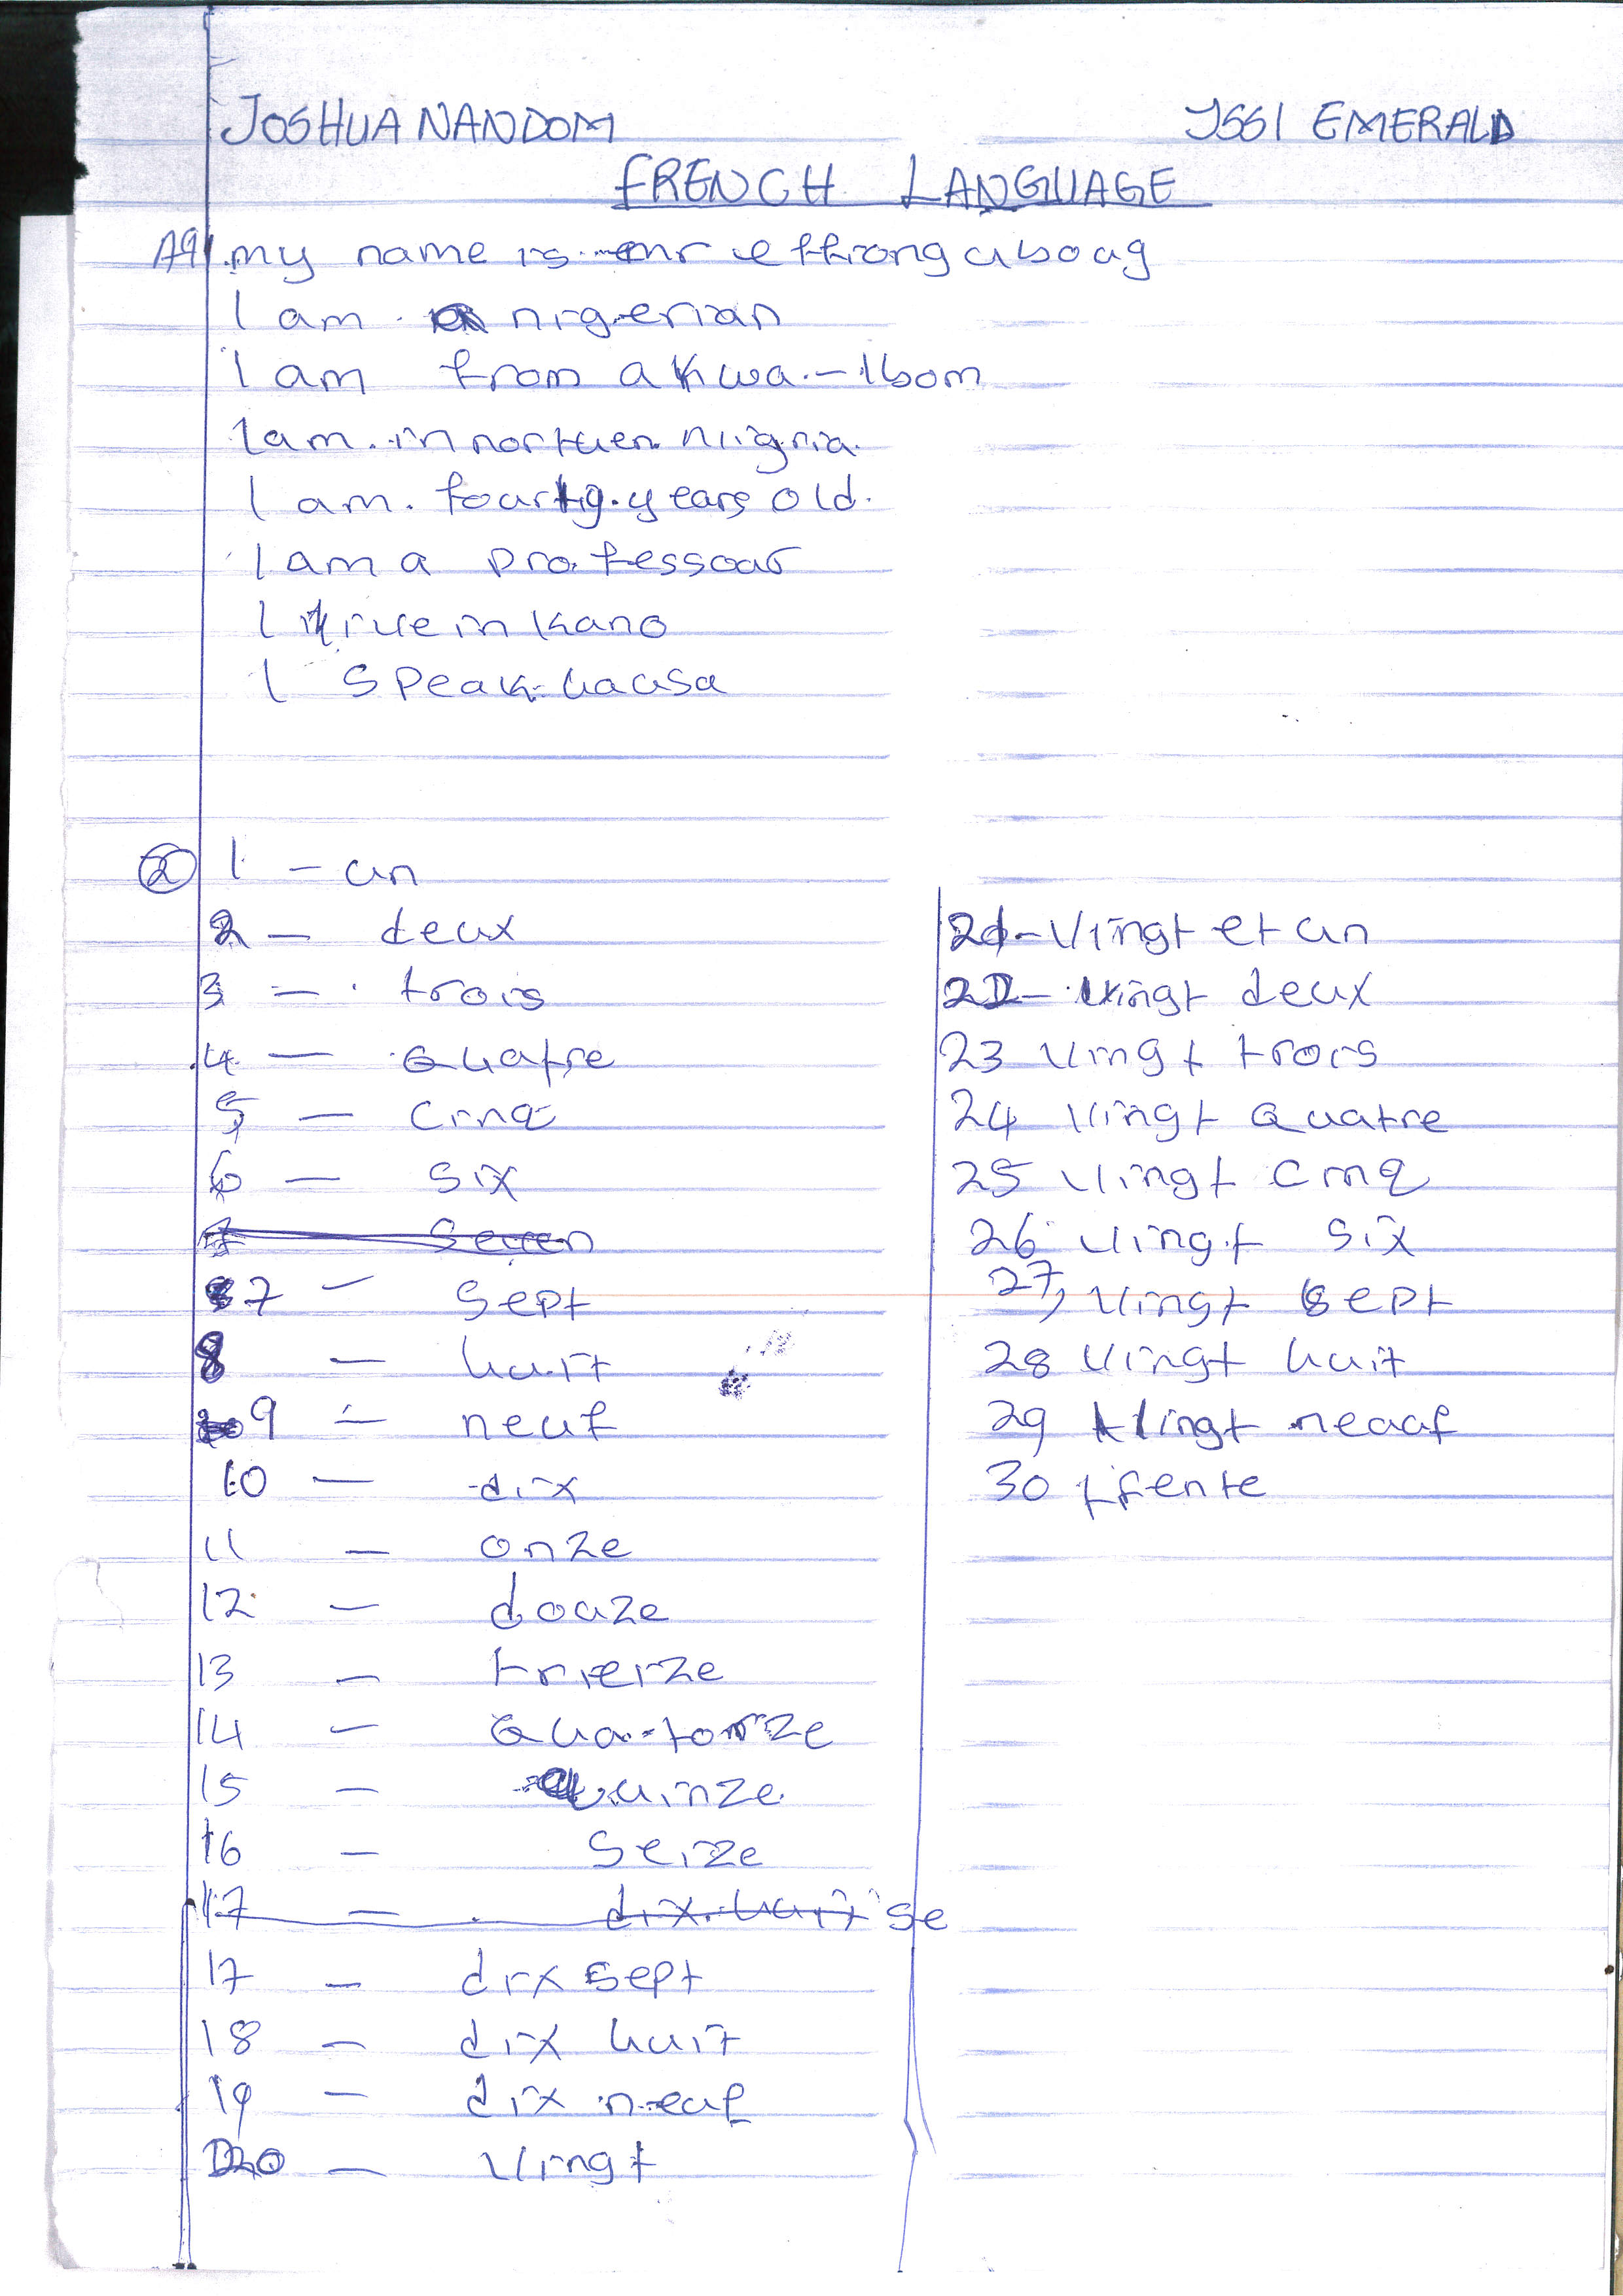 JOSHUA NANDOM
JSS1 EMERALD
FRENCH LANGUAGE
my name is mr effiong aboag
I am nigerian
I am from akwa-Ibom
I am in northen niigria
I am fourty years old.
I am a professoar
I live in kano
I speak hausa
2 1 - un
2 - deux
3 - trois
4 - Quatre
5 - cinq
6 - six
7 seven
7 - sept
8 - huit
9 - neuf
10 - dix
11 - onze
12 - douze
13 - trierze
14 - Quatorze
15 - Quinze
16 - Seize
17 - dix huit se
17 - dix sept
18 - dix huit
19 - dix neuf
20 - Vingt
21 - Vingt et un
22 - Vingt deux
23 Vingt trois
24 Vingt Quatre
25 Vingt cinq
26 Vingt six
27, Vingt sept
28 Vingt huit
29 Vingt neuf
30 trente